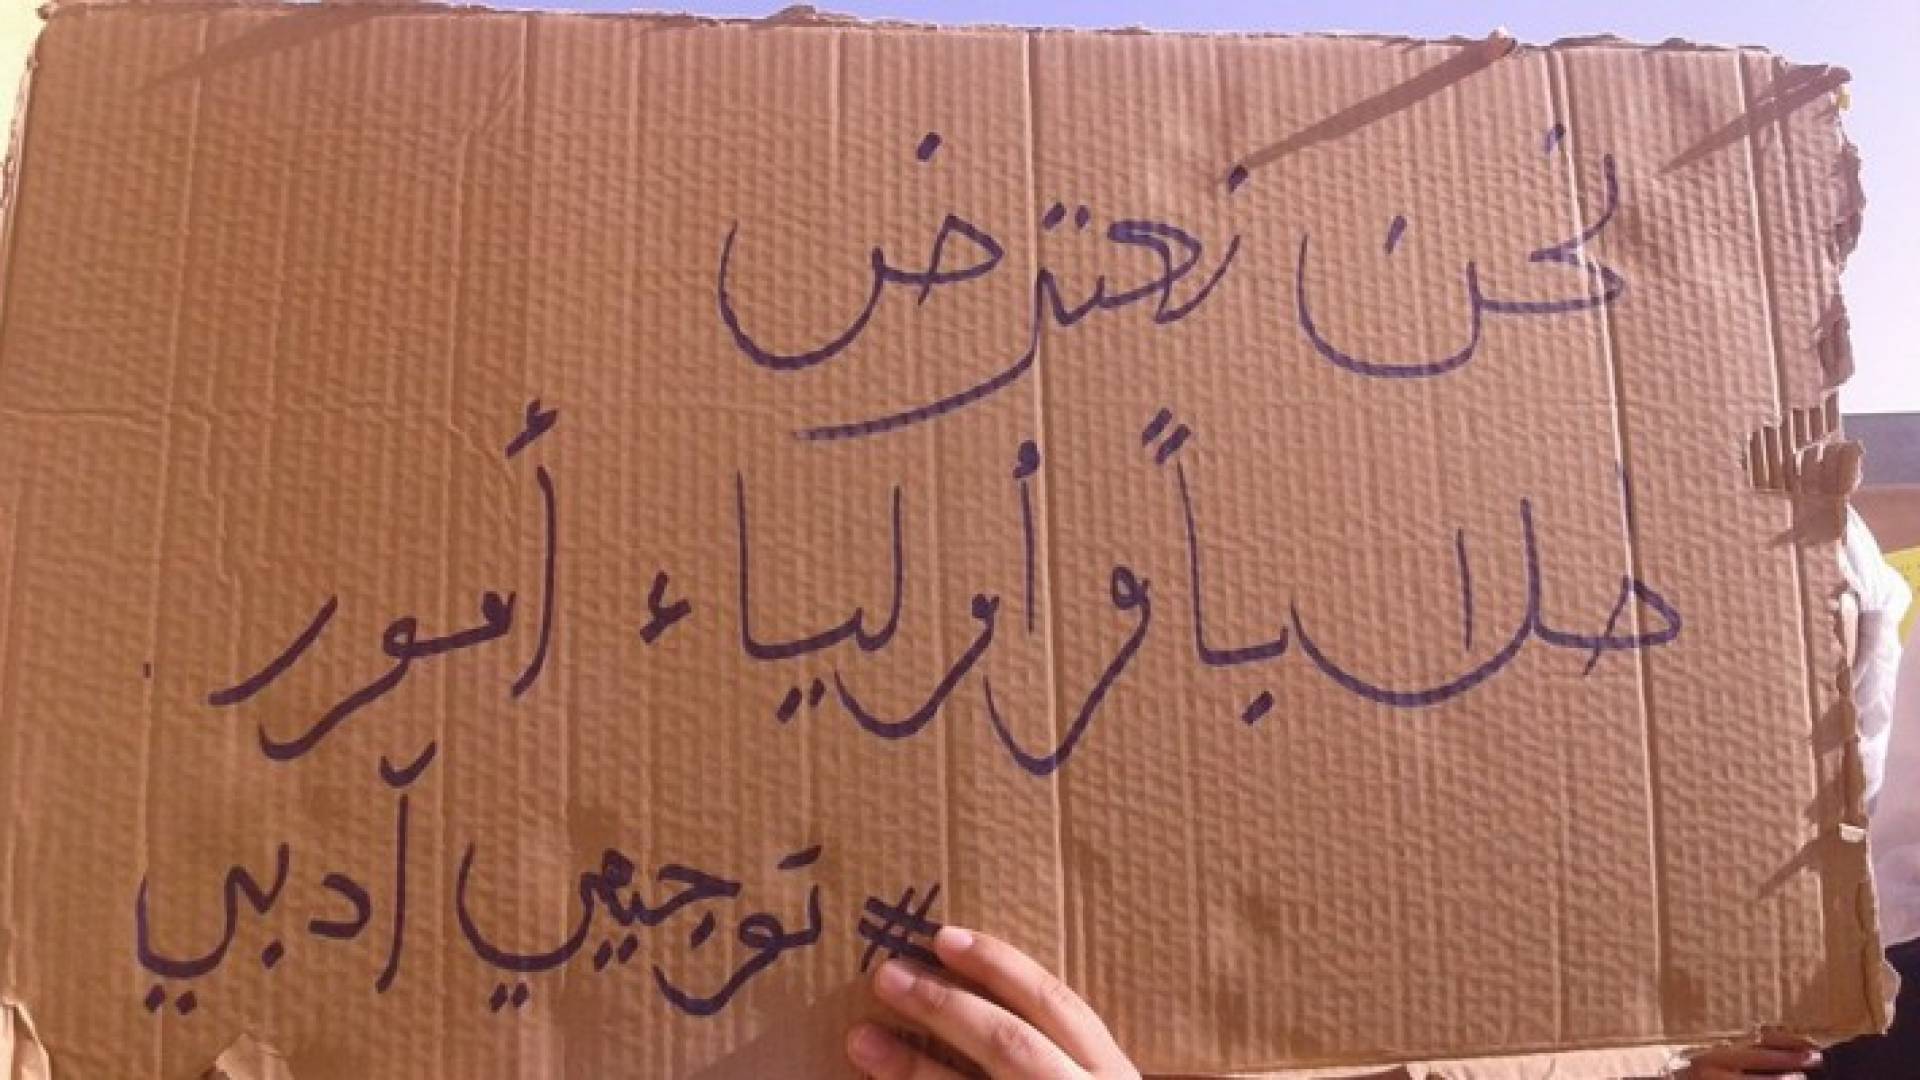 نحن نعترض
طلاباً وأولياء أمور
# توجيهي آدبي